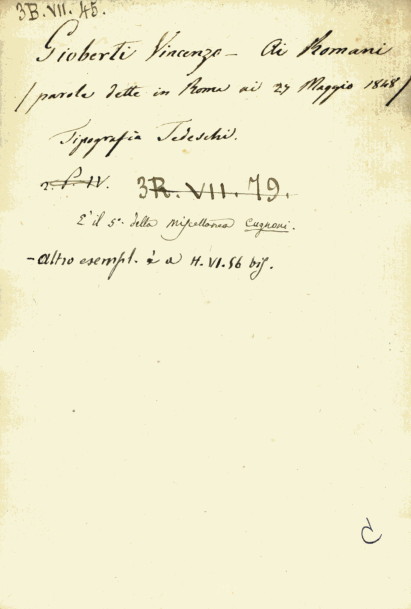 3B. VII. 45.
Gioberti Vincenzo – Ai Romani
/ parole dette in Roma ai 27 Maggio 1848 /
Tipografia Tedeschi.
IV. 3R. VII. 79.
È il 5º della Miscellanea Cugnoni.
– altro esempl. è a H. VI. 56 bis.
C